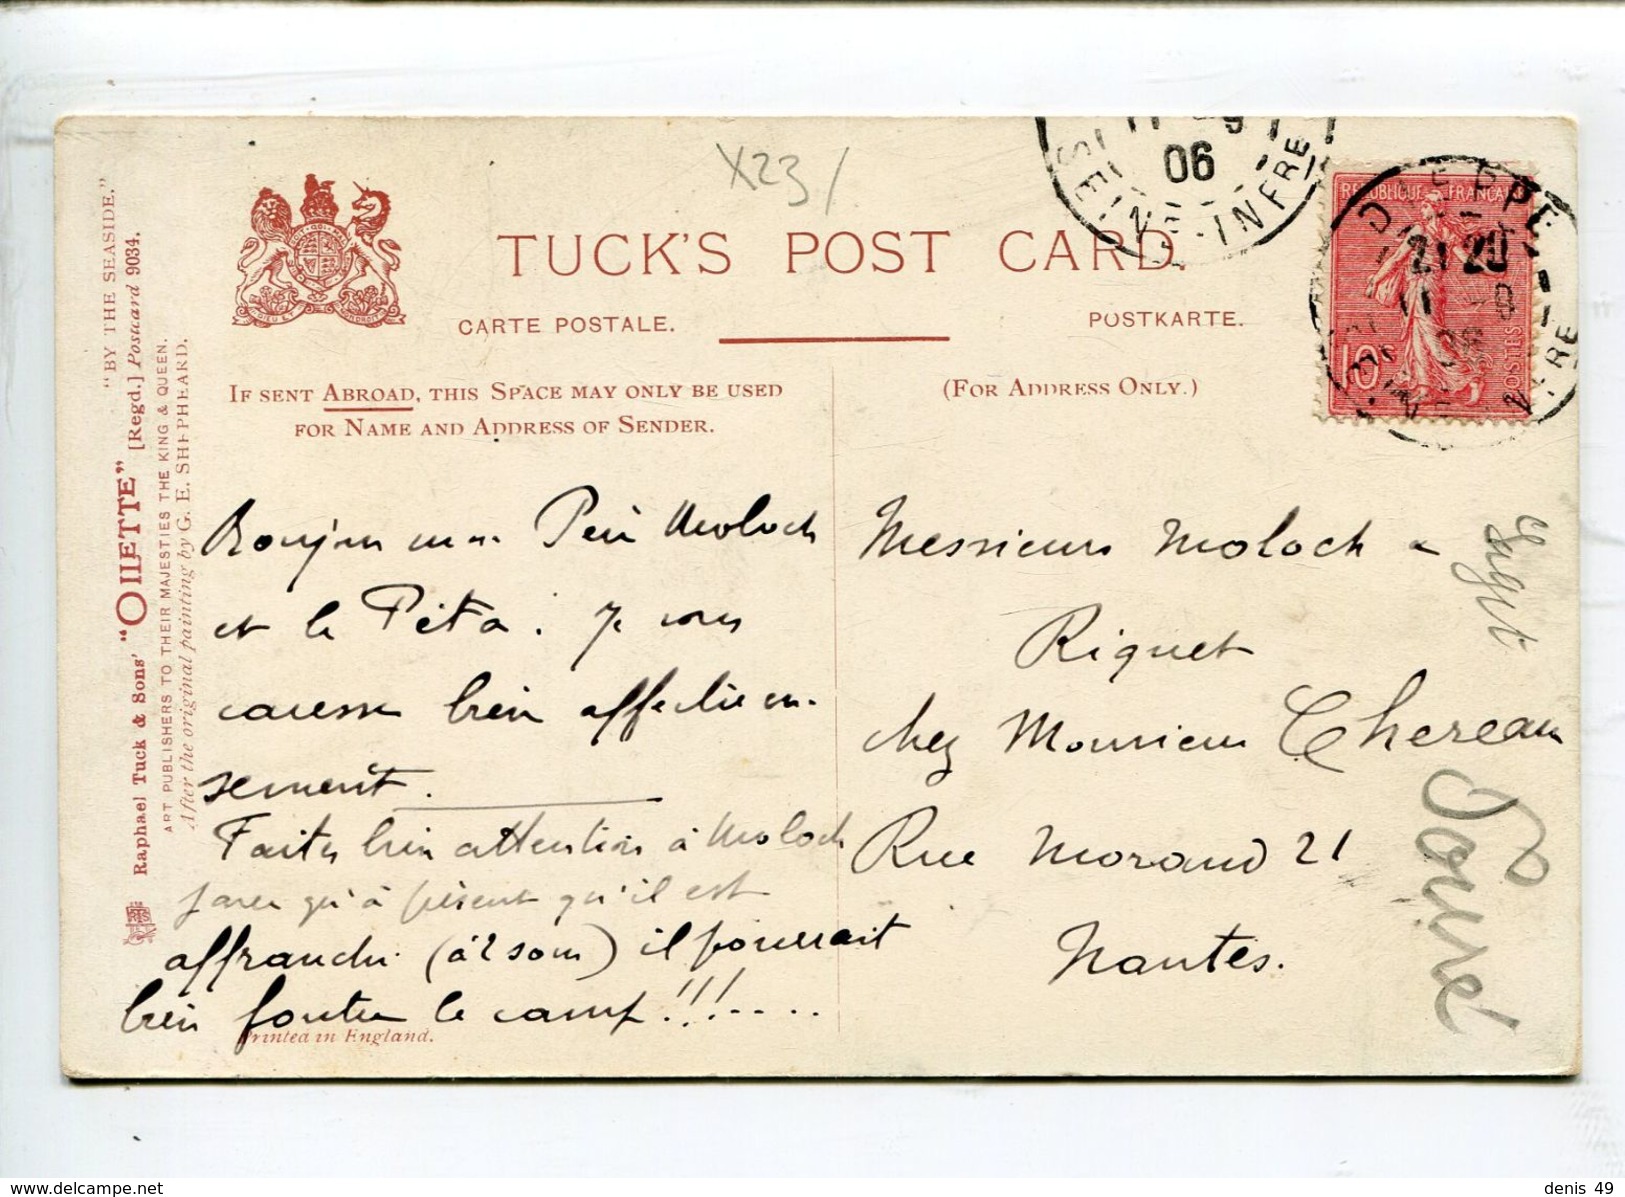 X23/
TUCK'S POST CARD.
CARTE POSTALE.
POSTKARTE.
IF SENT ABROAD, THIS SPACE MAY ONLY BE USED
FOR NAME AND ADDRESS OF SENDER.
(FOR ADDRESS ONLY.)
"BY THE SEASIDE."
Raphael Tuck & Sons' "OILETTE" [Regd.] Postcard 9034.
ART PUBLISHERS TO THEIR MAJESTIES THE KING & QUEEN.
After the original painting by G. E. SHEPHEARD.
SEINE-INFRE
06
REPUBLIQUE FRANCAISE
10c
POSTES
DIEPPE
21 20
11 -8
06
Bonjour mon Moloch
et le Péta. Je vous
caresse bien affectueu-
sement.
Faites bien attention à Moloch
parce qu'à présent qu'il est
affranchi (à 2 sous) il pourrait
bien foutre le camp!!!....
Printed in England.
Messieurs Moloch &
Riquet
chez Monsieur Chereau
Rue Morand 21
Nantes.
denis 49